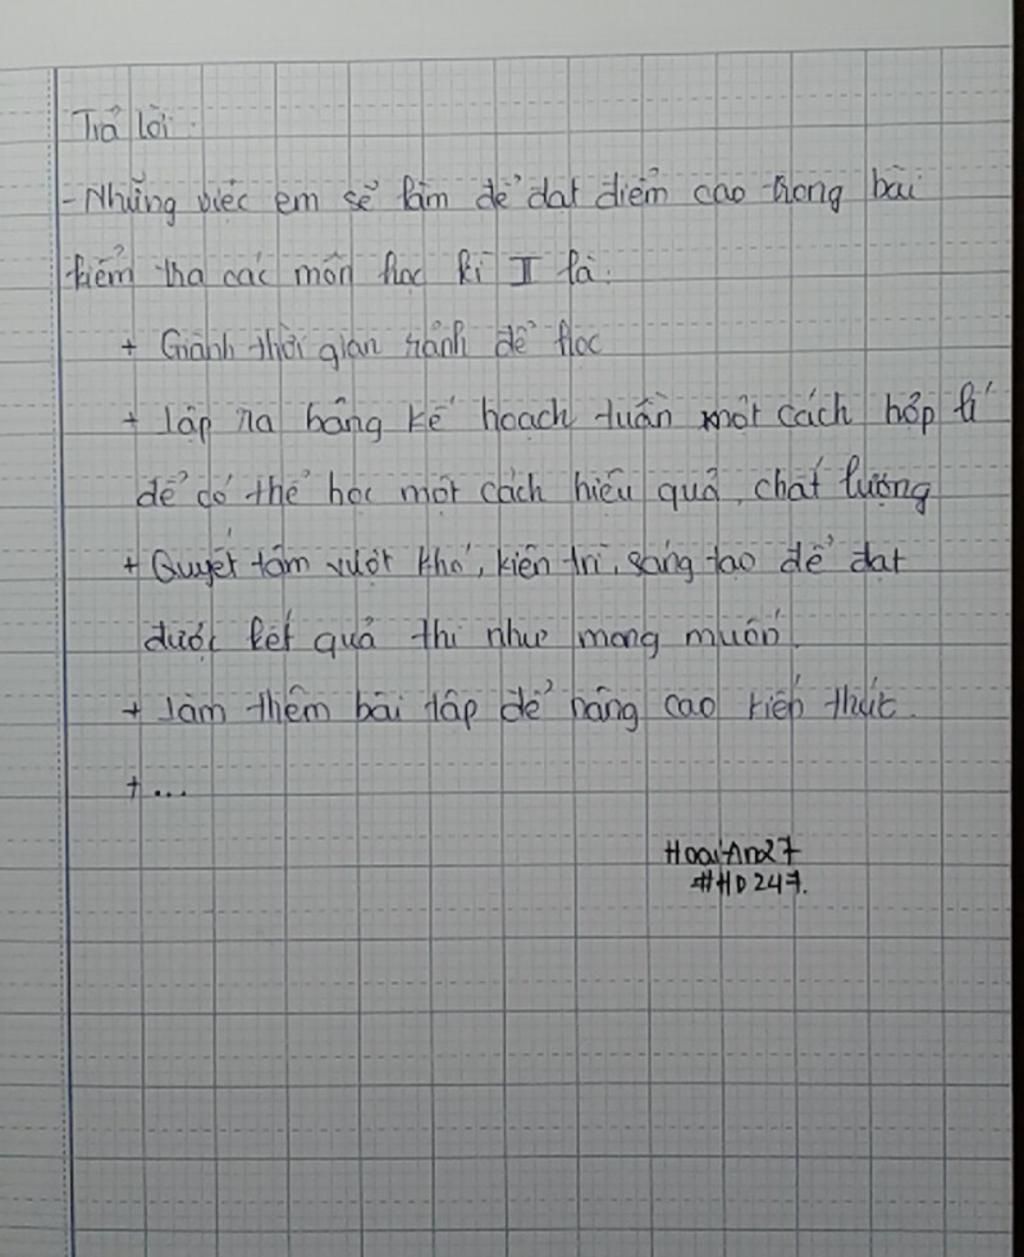 Trả lời.
- Những việc em sẽ làm để đạt điểm cao trong bài
kiểm tra các môn học kì II là:
+ Giành thời gian rảnh để học
+ Lập ra bảng kế hoạch tuần một cách hợp lí
để có thể học một cách hiệu quả, chất lượng
+ Quyết tâm vượt khó, kiên trì, sáng tạo để đạt
được kết quả thi như mong muốn.
+ Làm thêm bài tập để nâng cao kiến thức.
+ ...
HoaiAn27
#HD247.